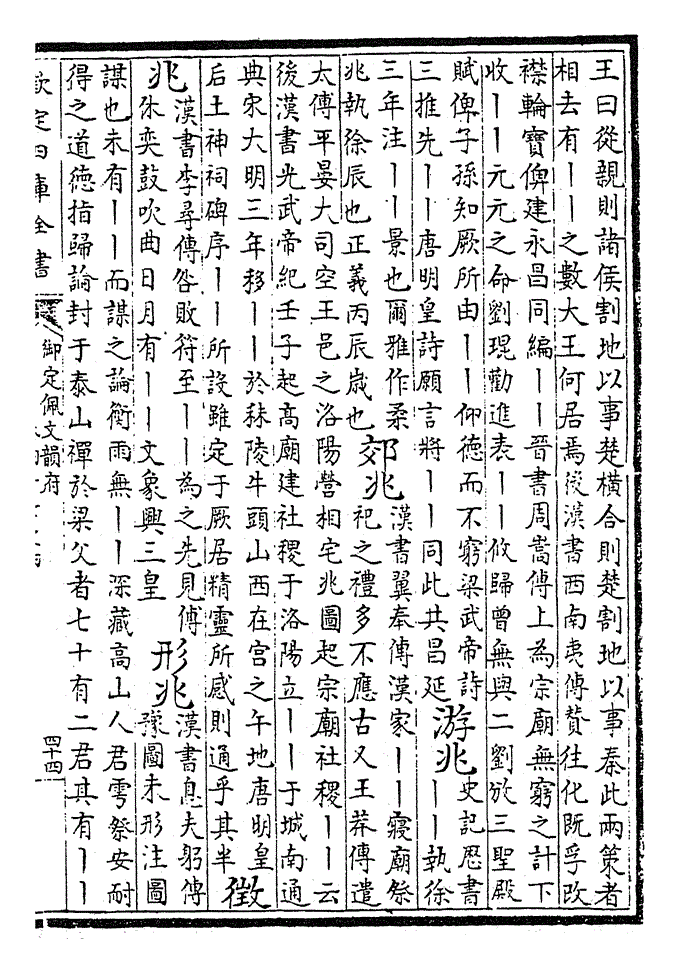 王曰從親則諸侯割地以事楚橫合則楚割地以事秦此兩策者
相去有丨丨之數大王何居焉後漢書西南夷傳贊往化既孚改
襟輪寶俾建永昌同編丨丨晉書周嵩傳上為宗廟無窮之計下
收丨丨元元之命劉琨勸進表丨丨攸歸曾無與二劉放三聖殿
賦俾子孫知厥所由丨丨仰德而不窮梁武帝詩
三推先丨丨唐明皇詩願言將丨丨同此共昌延
游兆
史記厯書
丨丨執徐
三年注丨丨景也爾雅作柔
兆執徐辰也正義丙辰歲也
郊兆
漢書翼奉傳漢家丨丨寢廟祭
祀之禮多不應古又王莽傳遣
太傅平晏大司空王邑之洛陽營相宅兆圖起宗廟社稷丨丨云
後漢書光武帝紀壬子起高廟建社稷于洛陽立丨丨于城南通
典宋大明三年移丨丨於秣陵牛頭山西在宮之午地唐明皇
后土神祠碑序丨丨所設雖定于厥居精靈所感則通乎其半
徵
兆
漢書李尋傳咎敗符至丨丨為之先見傅
休奕鼓吹曲日月有丨丨文象興三皇
形兆
漢書息夫躬傳
豫圖未形注圖
謀也未有丨丨而謀之論衡雨無丨丨深藏高山人君雩祭安耐
得之道德指歸論封于泰山禪於梁父者七十有二君其有丨丨
欽定四庫全書
御定佩文韻府
四十四